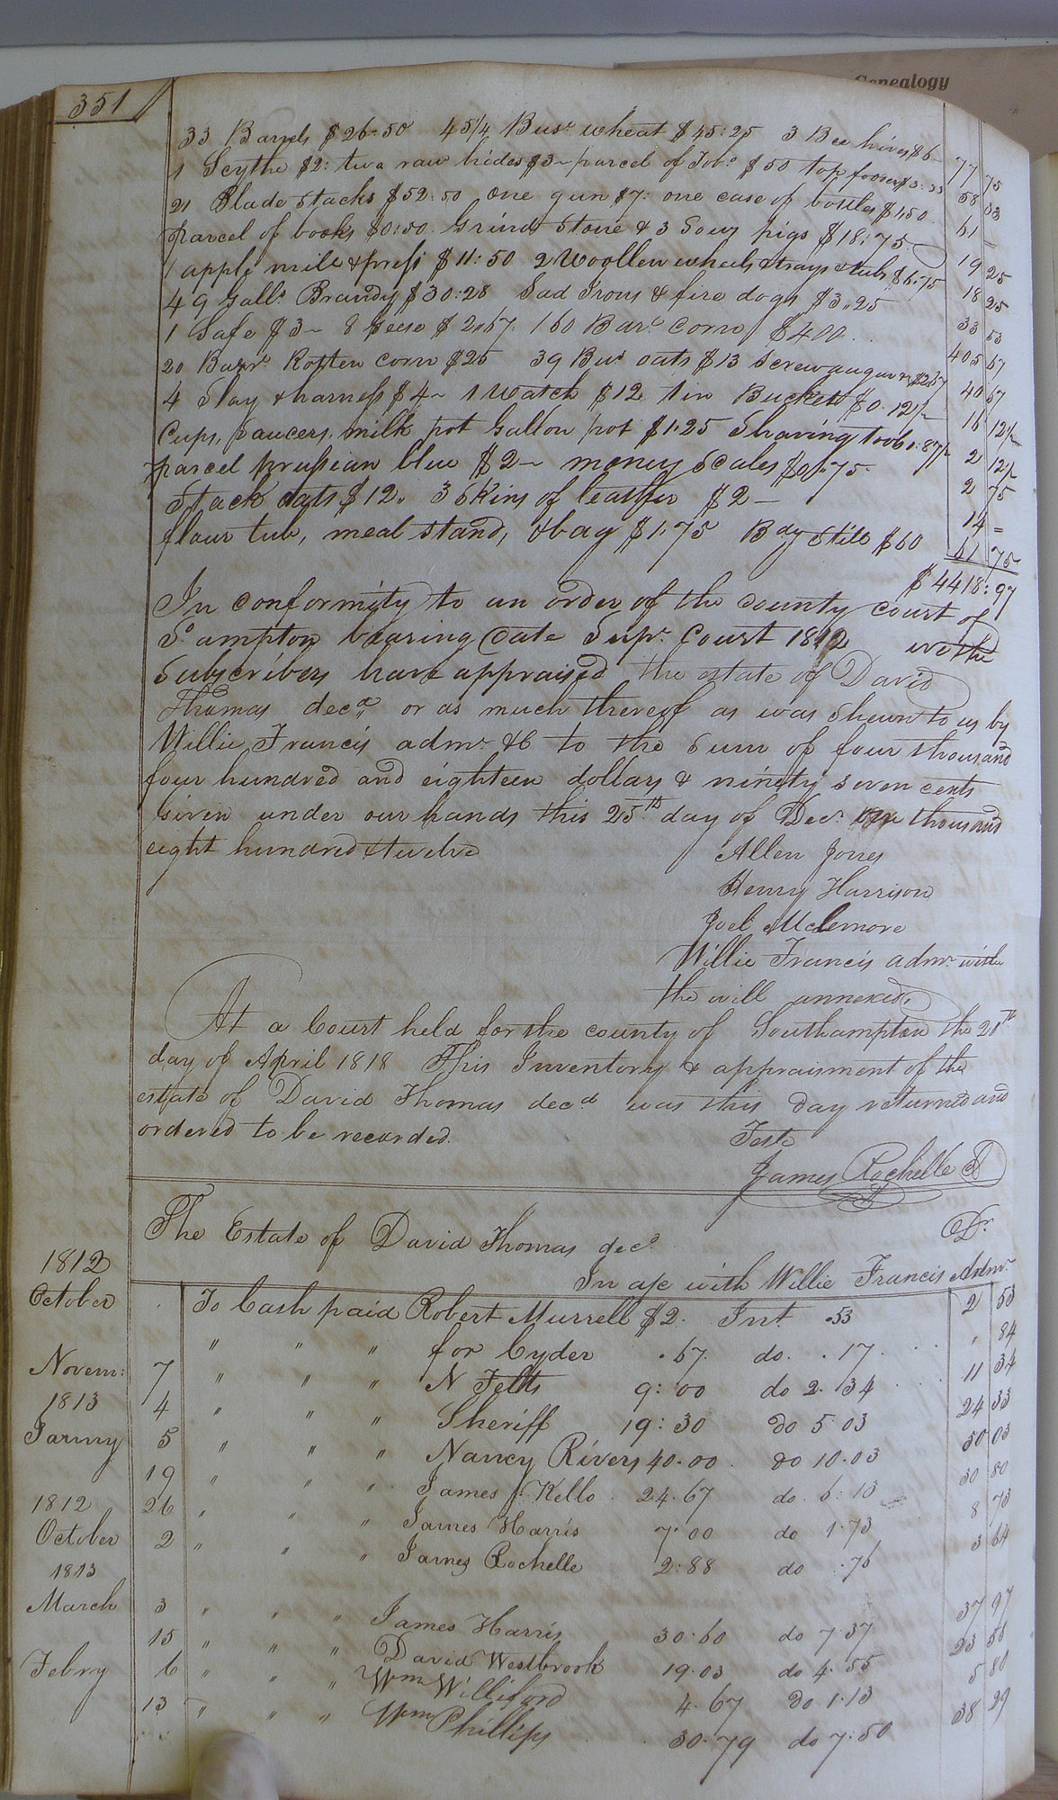 Genealogy
351
33 Barrels $26.50 45 1/4 Busl wheat $45:25 3 Bee hives $6~ 77 75
1 Scythe $2: two raw hides $3~ parcel of Tobo $50 top fooser $3.33 58 33
21 Blade Stacks $52:50 one gun $7: one case of bottles $1.50 61 –
parcel of books $0:50 Grind Stone & 3 Sows pigs $18:75 19 25
1 apple mill & press $11:50 2 Woollen wheels & trays & tubs $6.75 18 25
49 Galls Brandy $30:28 Sad Irons & fire dogs $3.25 33 53
1 Safe $3~ 8 Geese $2.67 160 Bars Corn $400 405 67
20 Barrs Rotten corn $25 39 Bus oats $13 Screw augurs $2.67 40 67
4 Slay & harness $4~ 1 Watch $12 tin Bucket $0.12½ 16 12½
Cups, Saucers, milk pot Gallon pot $1.25 Shaving tools .87½ 2 12½
parcel prussian blue $2~ money Scales $0.75 2 75
Stack oats $12. 3 Skins of leather $2 – 14 –
flour tub, meal stand, & bag $1.75 Bdy Still $60 61 75
$4418:97
In conformity to an order of the county court of
So ampton bearing date Sepr Court 1812 we the
Subscribers have appraised the estate of David
Thomas decd or as much thereof as was shewn to us by
Willie Francis admr &C to the Sum of four thousand
four hundred and eighteen dollars & ninety seven cents
Given under our hands this 25th day of Decr one thousand
eight hundred & twelve
Allen Jones
Henry Harrison
Joel Mclemore
Willie Francis admr with
the will annexed.
At a Court held for the county of Southampton the 21th
day of April 1818 This Inventory & appraisment of the
estate of David Thomas decd was this day returned and
ordered to be recorded.
Teste
James Rochelle
The Estate of David Thomas decd Dr
In a/c with Willie Francis Admr
1812
October To Cash paid Robert Murrell $2. Int .53 2 53
" " " for Cyder .67. do. .17. " 84
Novem: 7 " " " N Felts 9:00 do 2.34 11 34
1813 4 " " " Sheriff 19:30 do 5 03 24 33
Janry 5 " " " Nancy Rivers 40.00 do 10.03 50 03
19 " " " James J. Kello 24.67 do. 6:13 30 80
1812 26 " " " James Harris 7.00 do 1.73 8 73
October 2 " " " James Rochelle 2:88 do .76 3 64
1813
March 3 " " " James Harris 30.60 do 7.37 37 97
15 " " " David Westbrook 19.03 do 4.55 23 58
Febry 6 " " " Wm Williford 4.67 do 1.13 5 80
13 " " " Wm Phillips 30.79 do 7.50 38 29